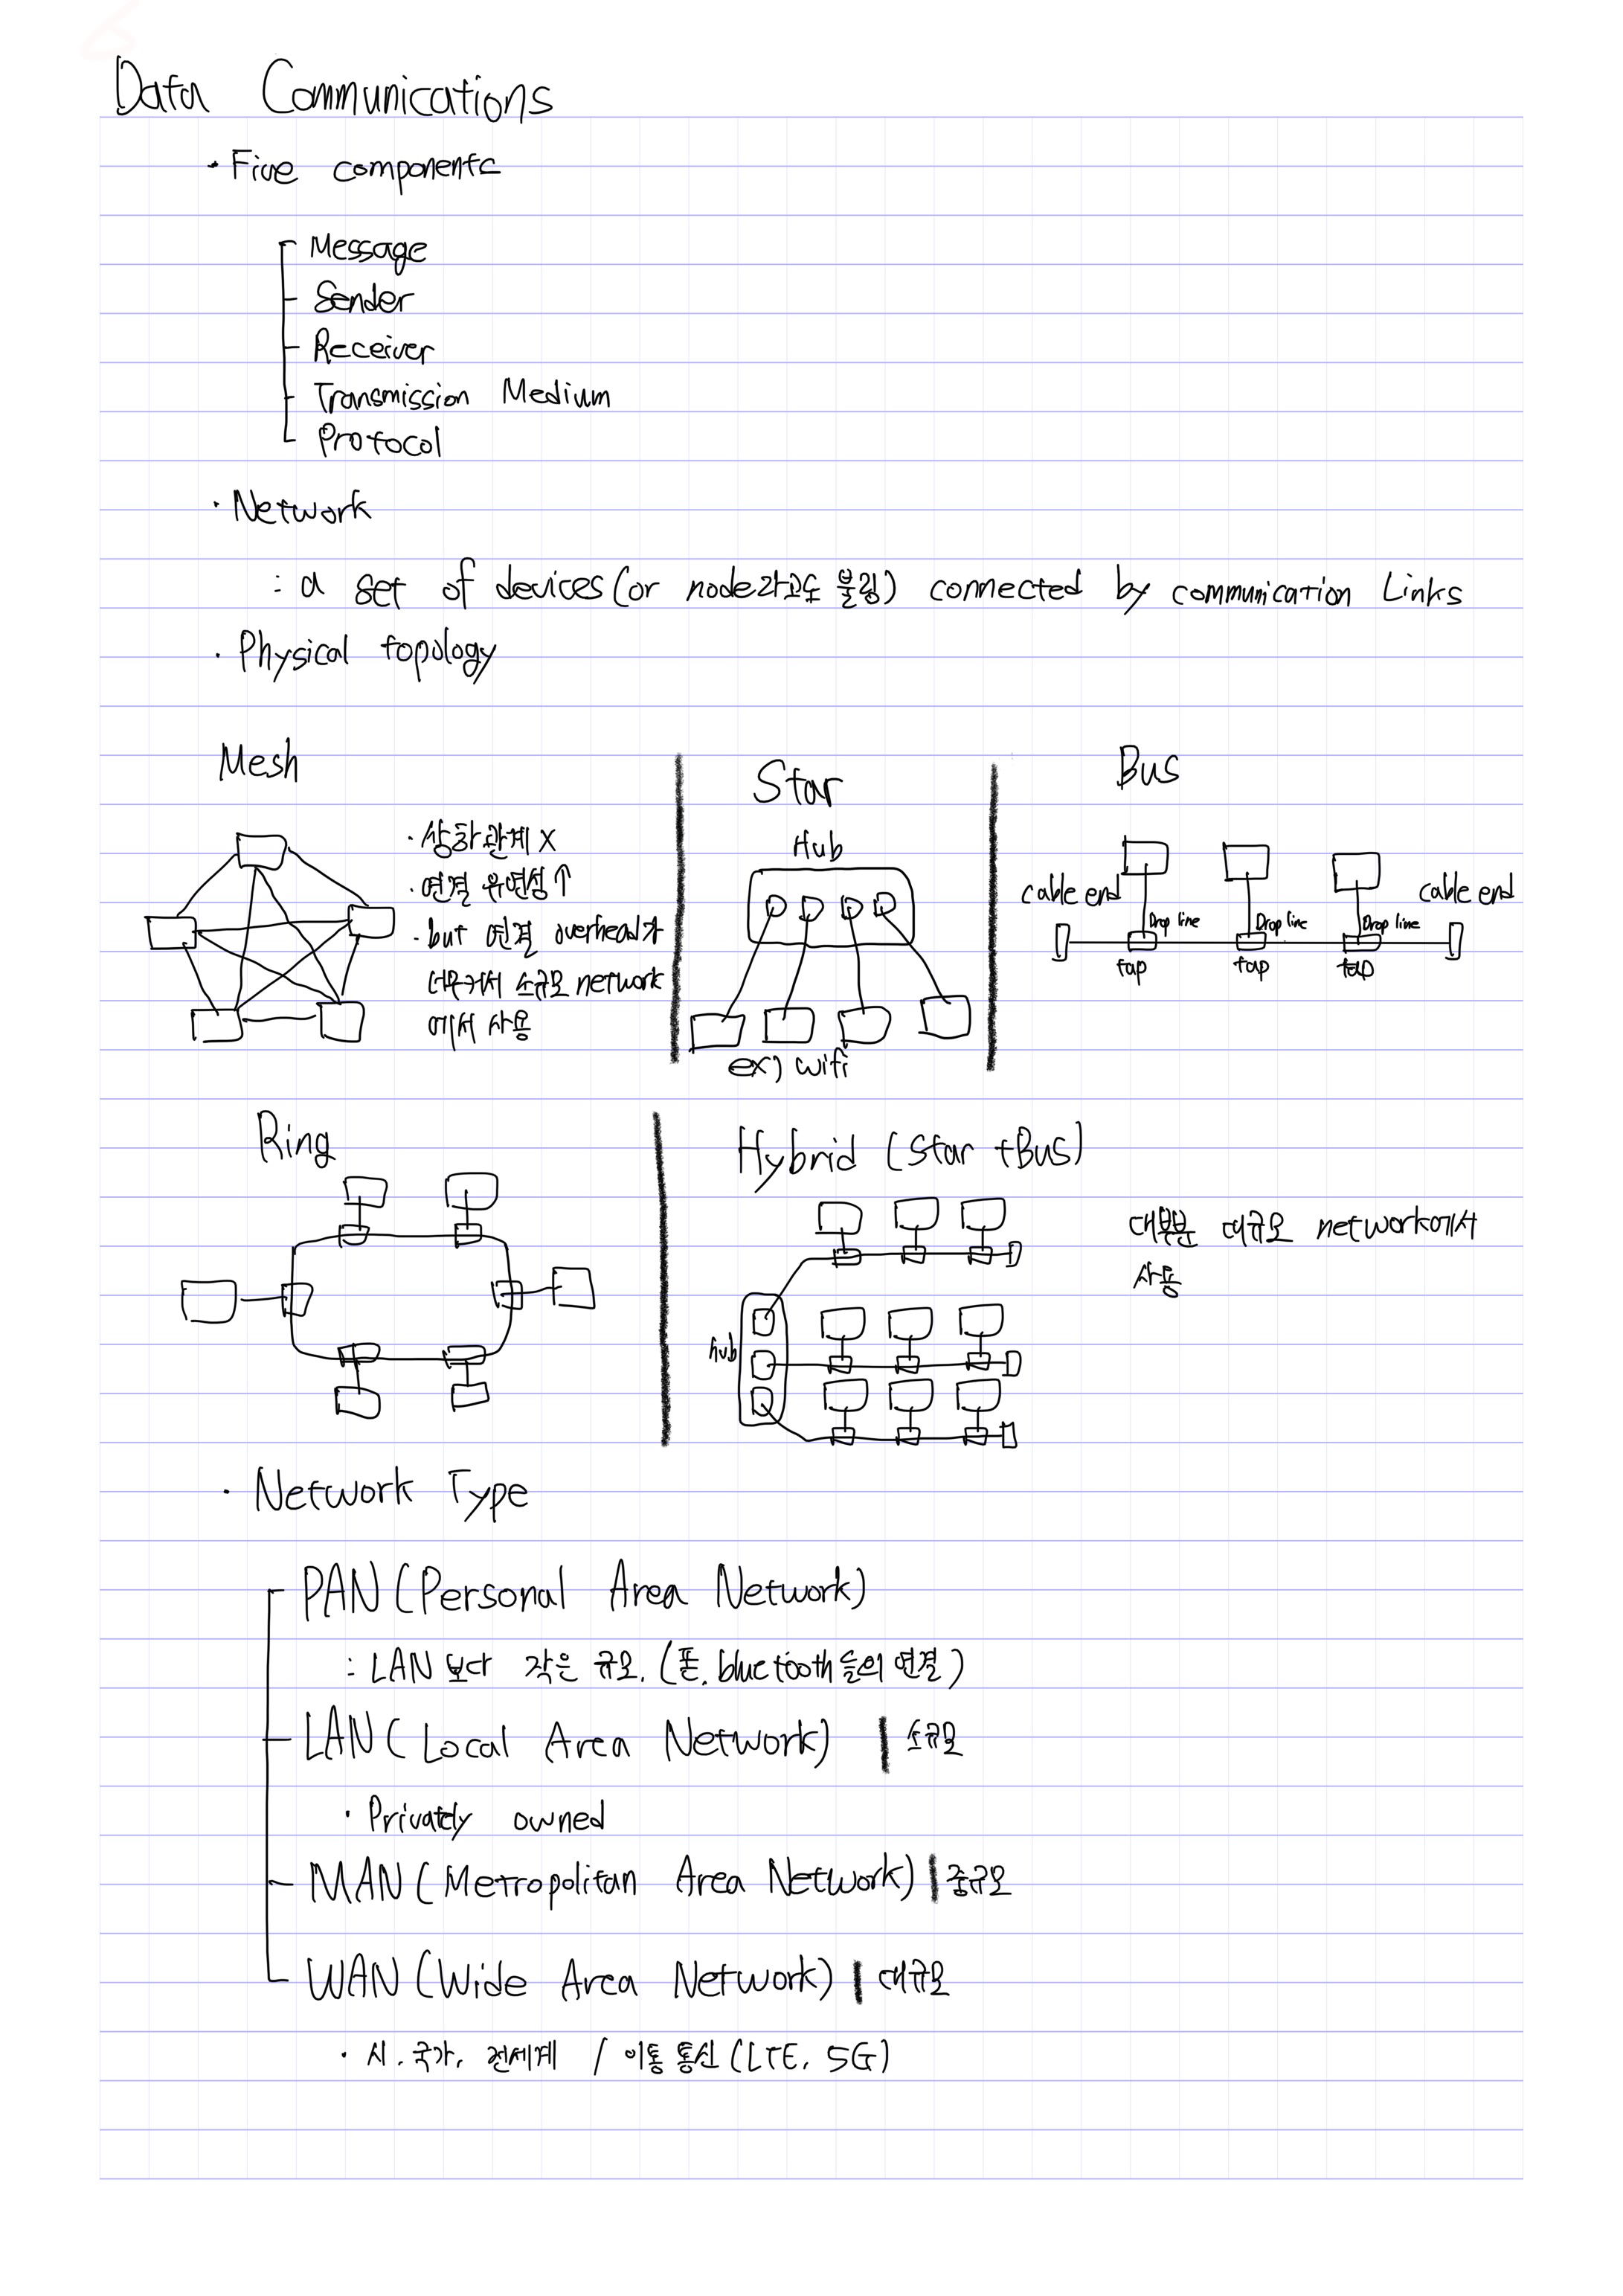 Data Communications
· Five components
Message
Sender
Receiver
Transmission Medium
Protocol
· Network
: a set of devices (or node라고도 불림) connected by communication Links
· Physical topology
Mesh
· 상하관계 X
· 연결 유연성 ↑
· but 연결 overhead가
너무커서 소규모 network
에서 사용
Star
Hub
ex) wifi
Bus
cable end
Drop line
Drop line
Drop line
cable end
tap
tap
tap
Ring
Hybrid (Star + Bus)
hub
대부분 대규모 network에서
사용
· Network Type
PAN (Personal Area Network)
: LAN 보다 작은 규모. (폰. bluetooth 등의 연결)
LAN (Local Area Network) | 소규모
· Privately owned
MAN (Metropolitan Area Network) | 중규모
WAN (Wide Area Network) | 대규모
· 시. 국가. 전세계 / 이동 통신 (LTE. 5G)